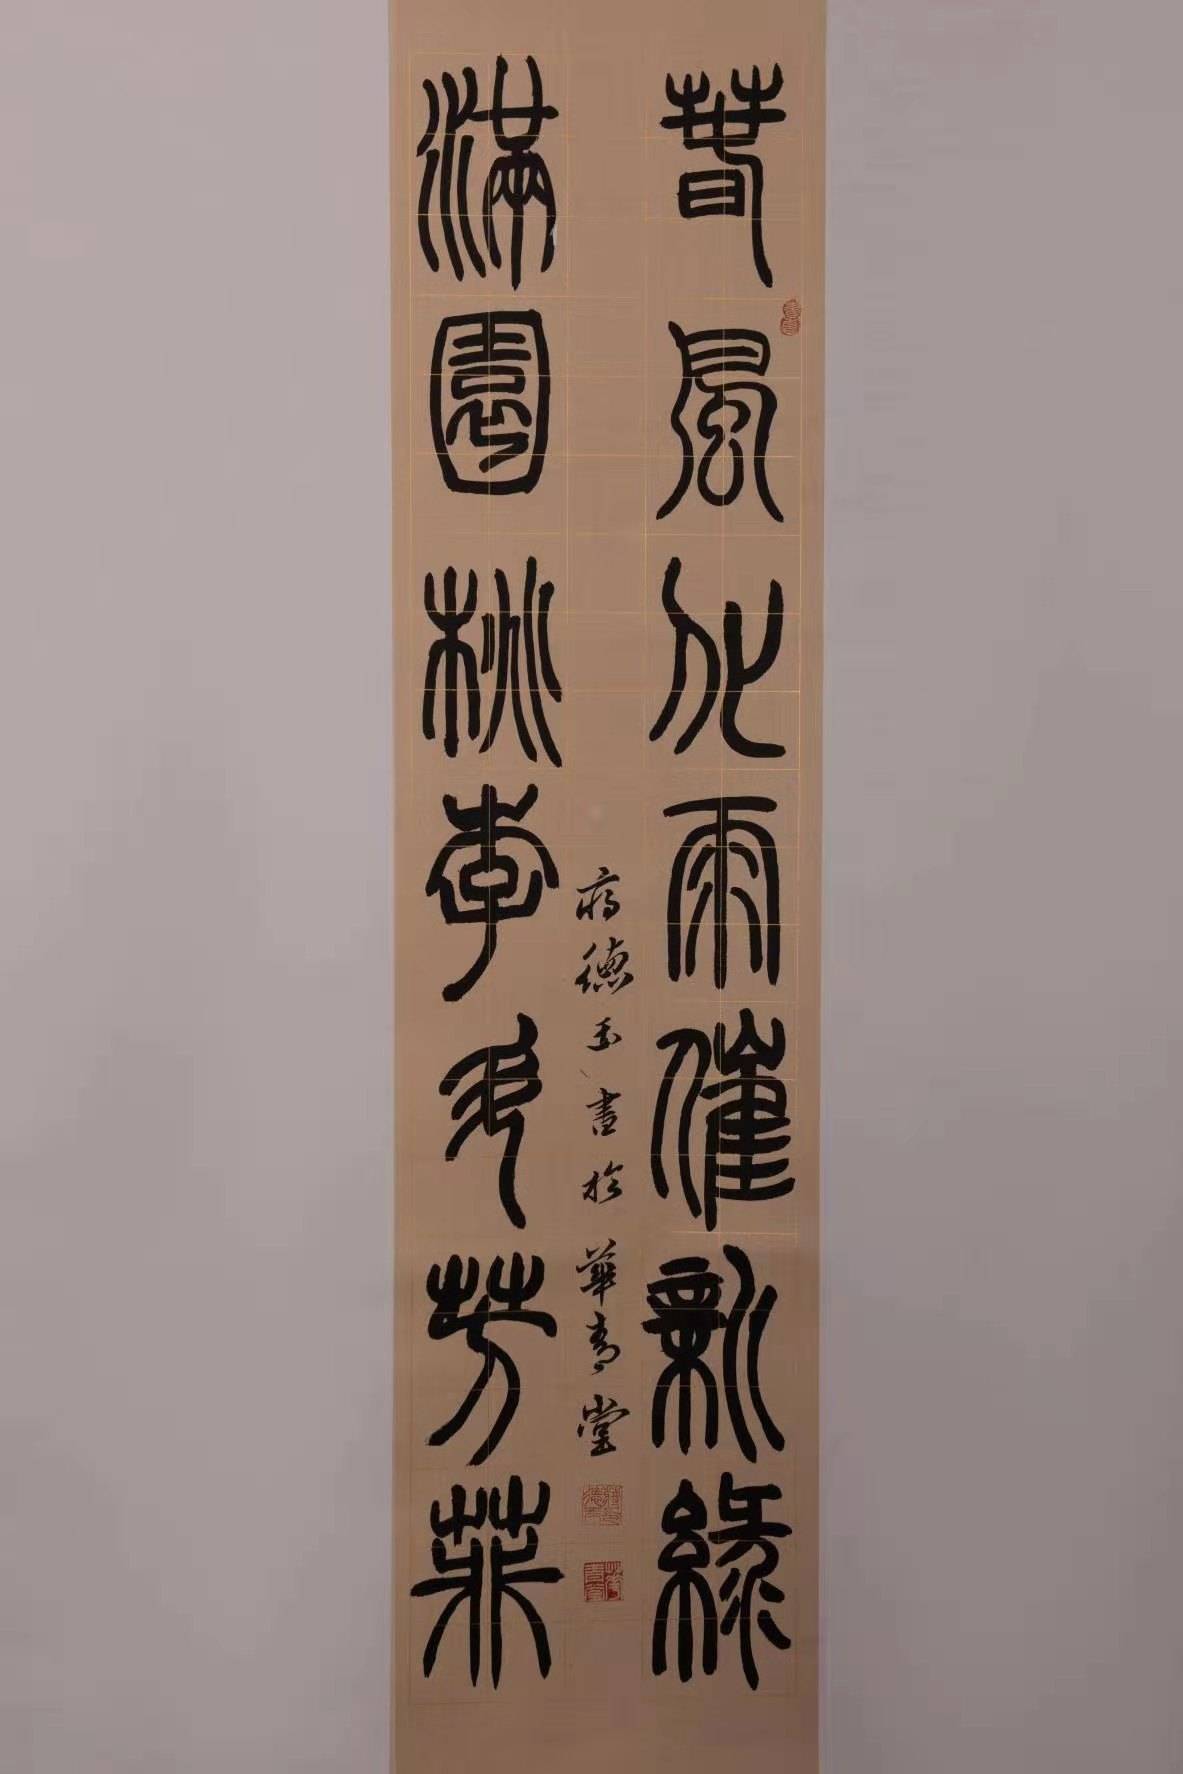 春風化雨催新綠
滿園桃李多芳菲
蔣德玉書於華青堂